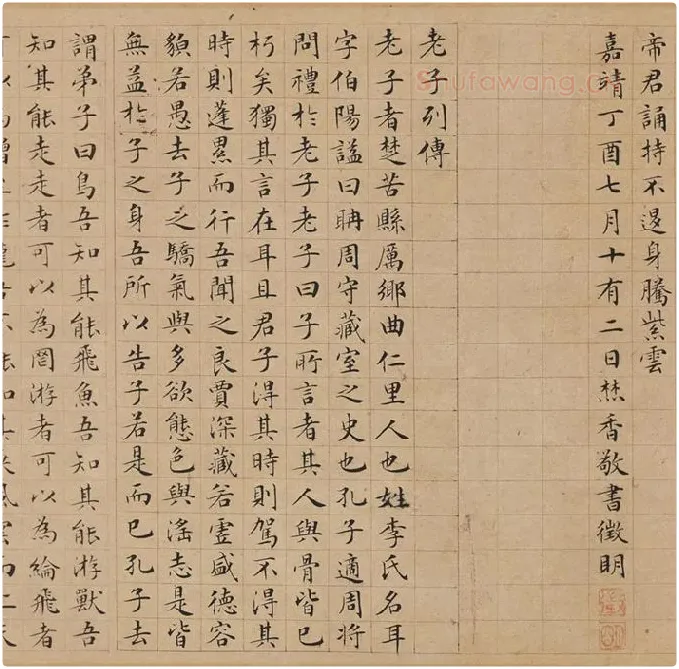 帝君誦持不退身騰紫雲
嘉靖丁酉七月十有二日焚香敬書徵明
老子列傳
老子者楚苦縣厲鄉曲仁里人也姓李氏名耳
字伯陽謚曰聃周守藏室之史也孔子適周將
問禮於老子老子曰子所言者其人與骨皆已
朽矣獨其言在耳且君子得其時則駕不得其
時則蓬累而行吾聞之良賈深藏若虛盛德容
貌若愚去子之驕氣與多欲態色與淫志是皆
無益於子之身吾所以告子若是而已孔子去
謂弟子曰鳥吾知其能飛魚吾知其能游獸吾
知其能走走者可以為罔游者可以為綸飛者
Shufawang.cn